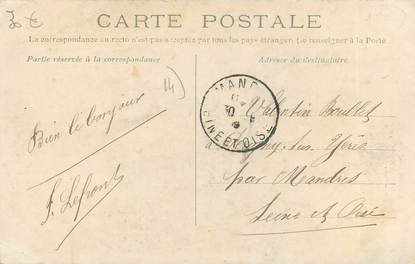 30€
CARTE POSTALE
La correspondance au recto n'est pas acceptée par tous les pays étrangers (Se renseigner à la Poste
Partie réservée à la correspondance
Adresse du destinataire
14)
MAND
30
SEINE ET OISE
Bien le bonjour
Valentin
sur Yères
par Mandres
Seine et Oise